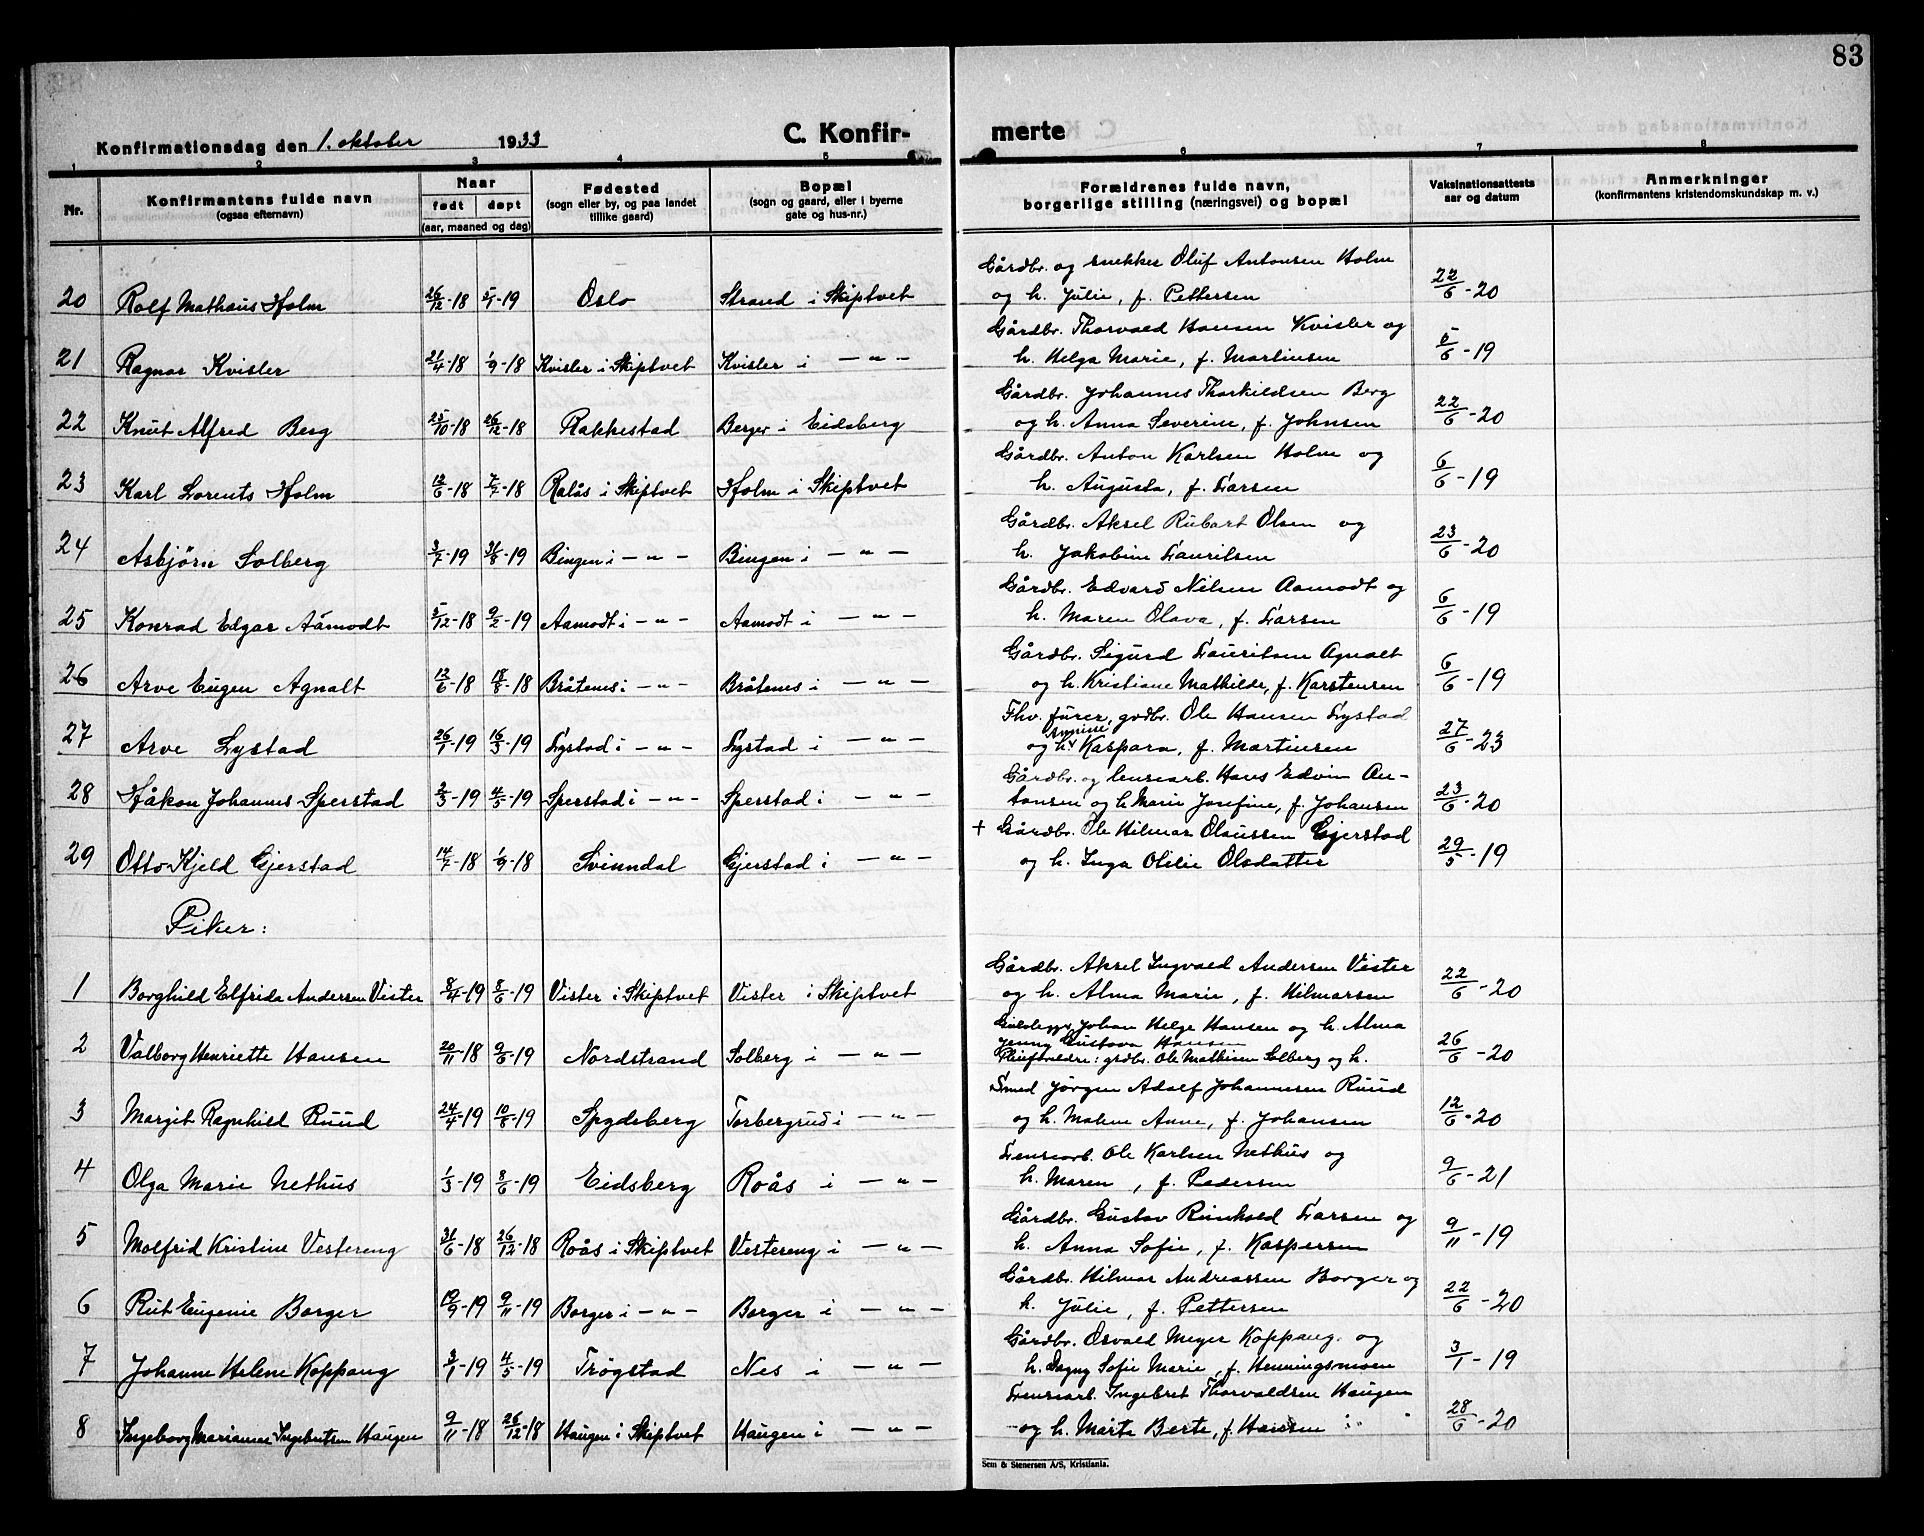 83
Konfirmationsdag den 1. oktober 1933
C. Konfirmerte
1 2 3 4 5 6 7 8
Nr.
Konfirmantens fulde navn
(ogsaa efternavn)
Naar
født døpt
(aar, maaned og dag)
Fødested
(sogn eller by, og paa landet
tillike gaard)
Bopæl
(sogn og gaard, eller i byerne
gate og hus-nr.)
Forældrenes fulde navn,
borgerlige stilling (næringsvei) og bopæl
Vaksinationsattests
aar og datum
Anmerkninger
(konfirmantens kristendomskundskap m. v.)
Gårdbr. og snekker Oluf Antonsen Holm
20 Rolf Mathæus Holm 26/12-18 5/1-19 Oslo Strand i Skiptvet og h. Julie, f. Pettersen 22/6-20
Gårdbr. Thorvald Hansen Kvisler og
21 Ragnar Kvisler 21/4-18 1/9-18 Kvisler i Skiptvet Kvisler i — " — h. Helga Marie, f. Martinsen 5/6-19
Gårdbr. Johannes Thorkildsen Berg
22 Knut Alfred Berg 25/10-18 26/12-18 Rakkestad Berger i Eidsberg og h. Anna Severine, f. Johnsen 22/6-20
Gårdbr. Anton Karlsen Holm og
23 Karl Lorents Holm 12/6-18 7/7-18 Ralås i Skiptvet Holm i Skiptvet h. Augusta, f. Larsen 6/6-19
Gårdbr. Aksel Robart Olsen og
24 Asbjørn Solberg 3/7-19 31/8-19 Bingen i — " — Bingen i — " — h. Jakobine Lauritsen 23/6-20
Gårdbr. Edvard Nilsen Aamodt og
25 Konrad Edgar Aamodt 5/12-18 9/2-19 Aamodt i — " — Aamodt i — " — h. Maren Olava, f. Larsen 6/6-19
Gårdbr. Sigurd Lauritsen Agnalt
26 Arve Eugen Agnalt 12/6-18 18/8-18 Bråtenes i — " — Bråtenes i — " — og h. Kristiane Mathilde, f. Karstensen 6/6-19
Fhv. furer, grdbr. Ole Hansen Lystad
27 Arve Lystad 26/1-19 16/3-19 Lystad i — " — Lystad i — " — og h. Kaspara, f. Martinsen 27/6-23
Gårdbr. og lensearb. Hans Edvin An-
28 Håkon Johannes Sperstad 2/3-19 4/5-19 Sperstad i — " — Sperstad i — " — tonsen og h. Marie Josefine, f. Johansen 23/6-20
+ Gårdbr. Ole Hilmar Olaussen Gjerstad
29 Otto Kjeld Gjerstad 14/7-18 1/9-18 Svinndal Gjerstad i — " — og h. Inga Otilie Olsdatter 29/5-19
Piker:
Gårdbr. Aksel Ingvald Andersen Vister
1 Borghild Elfrida Andersen Vister 8/4-19 8/6-19 Vister i Skiptvet Vister i Skiptvet og h. Alma Marie, f. Hilmarsen 22/6-20
Johan Helge Hansen og h. Alma
Jenny Gustava Hansen
2 Valborg Henriette Hansen 20/11-18 9/6-19 Nordstrand Solberg i — " — Pleiforeldre: grdbr. Ole Mathisen Solberg og h. 26/6-20
Smed Jørgen Adolf Johannesen Ruud
3 Margit Ragnhild Ruud 24/4-19 10/8-19 Spydeberg Torbergrud i — " — og h. Malene Anne, f. Johansen 12/6-20
Lensearb. Ole Karlsen Nethus og
4 Olga Marie Nethus 1/3-19 8/6-19 Eidsberg Roås i — " — h. Maren, f. Pedersen 9/6-21
Gårdbr. Gustav Reinhold Larsen og
5 Molfrid Kristine Vestereng 31/6-18 26/12-18 Roås i Skiptvet Vestereng i — " — h. Anna Sofie, f. Kaspersen 9/11-19
Gårdbr. Hilmar Andreassen Borger og
6 Rut Eugenie Borger 19/9-19 9/11-19 Borger i — " — Borger i — " — h. Julie, f. Pettersen 22/6-20
Gårdbr. Osvald Meyer Koppang og
7 Johanne Helene Koppang 3/1-19 4/5-19 Trøgstad Nes i — " — h. Dagny Sofie Marie, f. Henningsmoen 3/1-19
Lensearb. Ingebret Thorvaldsen Haugen
8 Ingeborg Marianne Ingebretsen Haugen 9/11-18 26/12-18 Haugen i Skiptvet Haugen i — " — og h. Marte Berte, f. Hansen 28/6-20
Sem & Stenersen A/S, Kristiania.